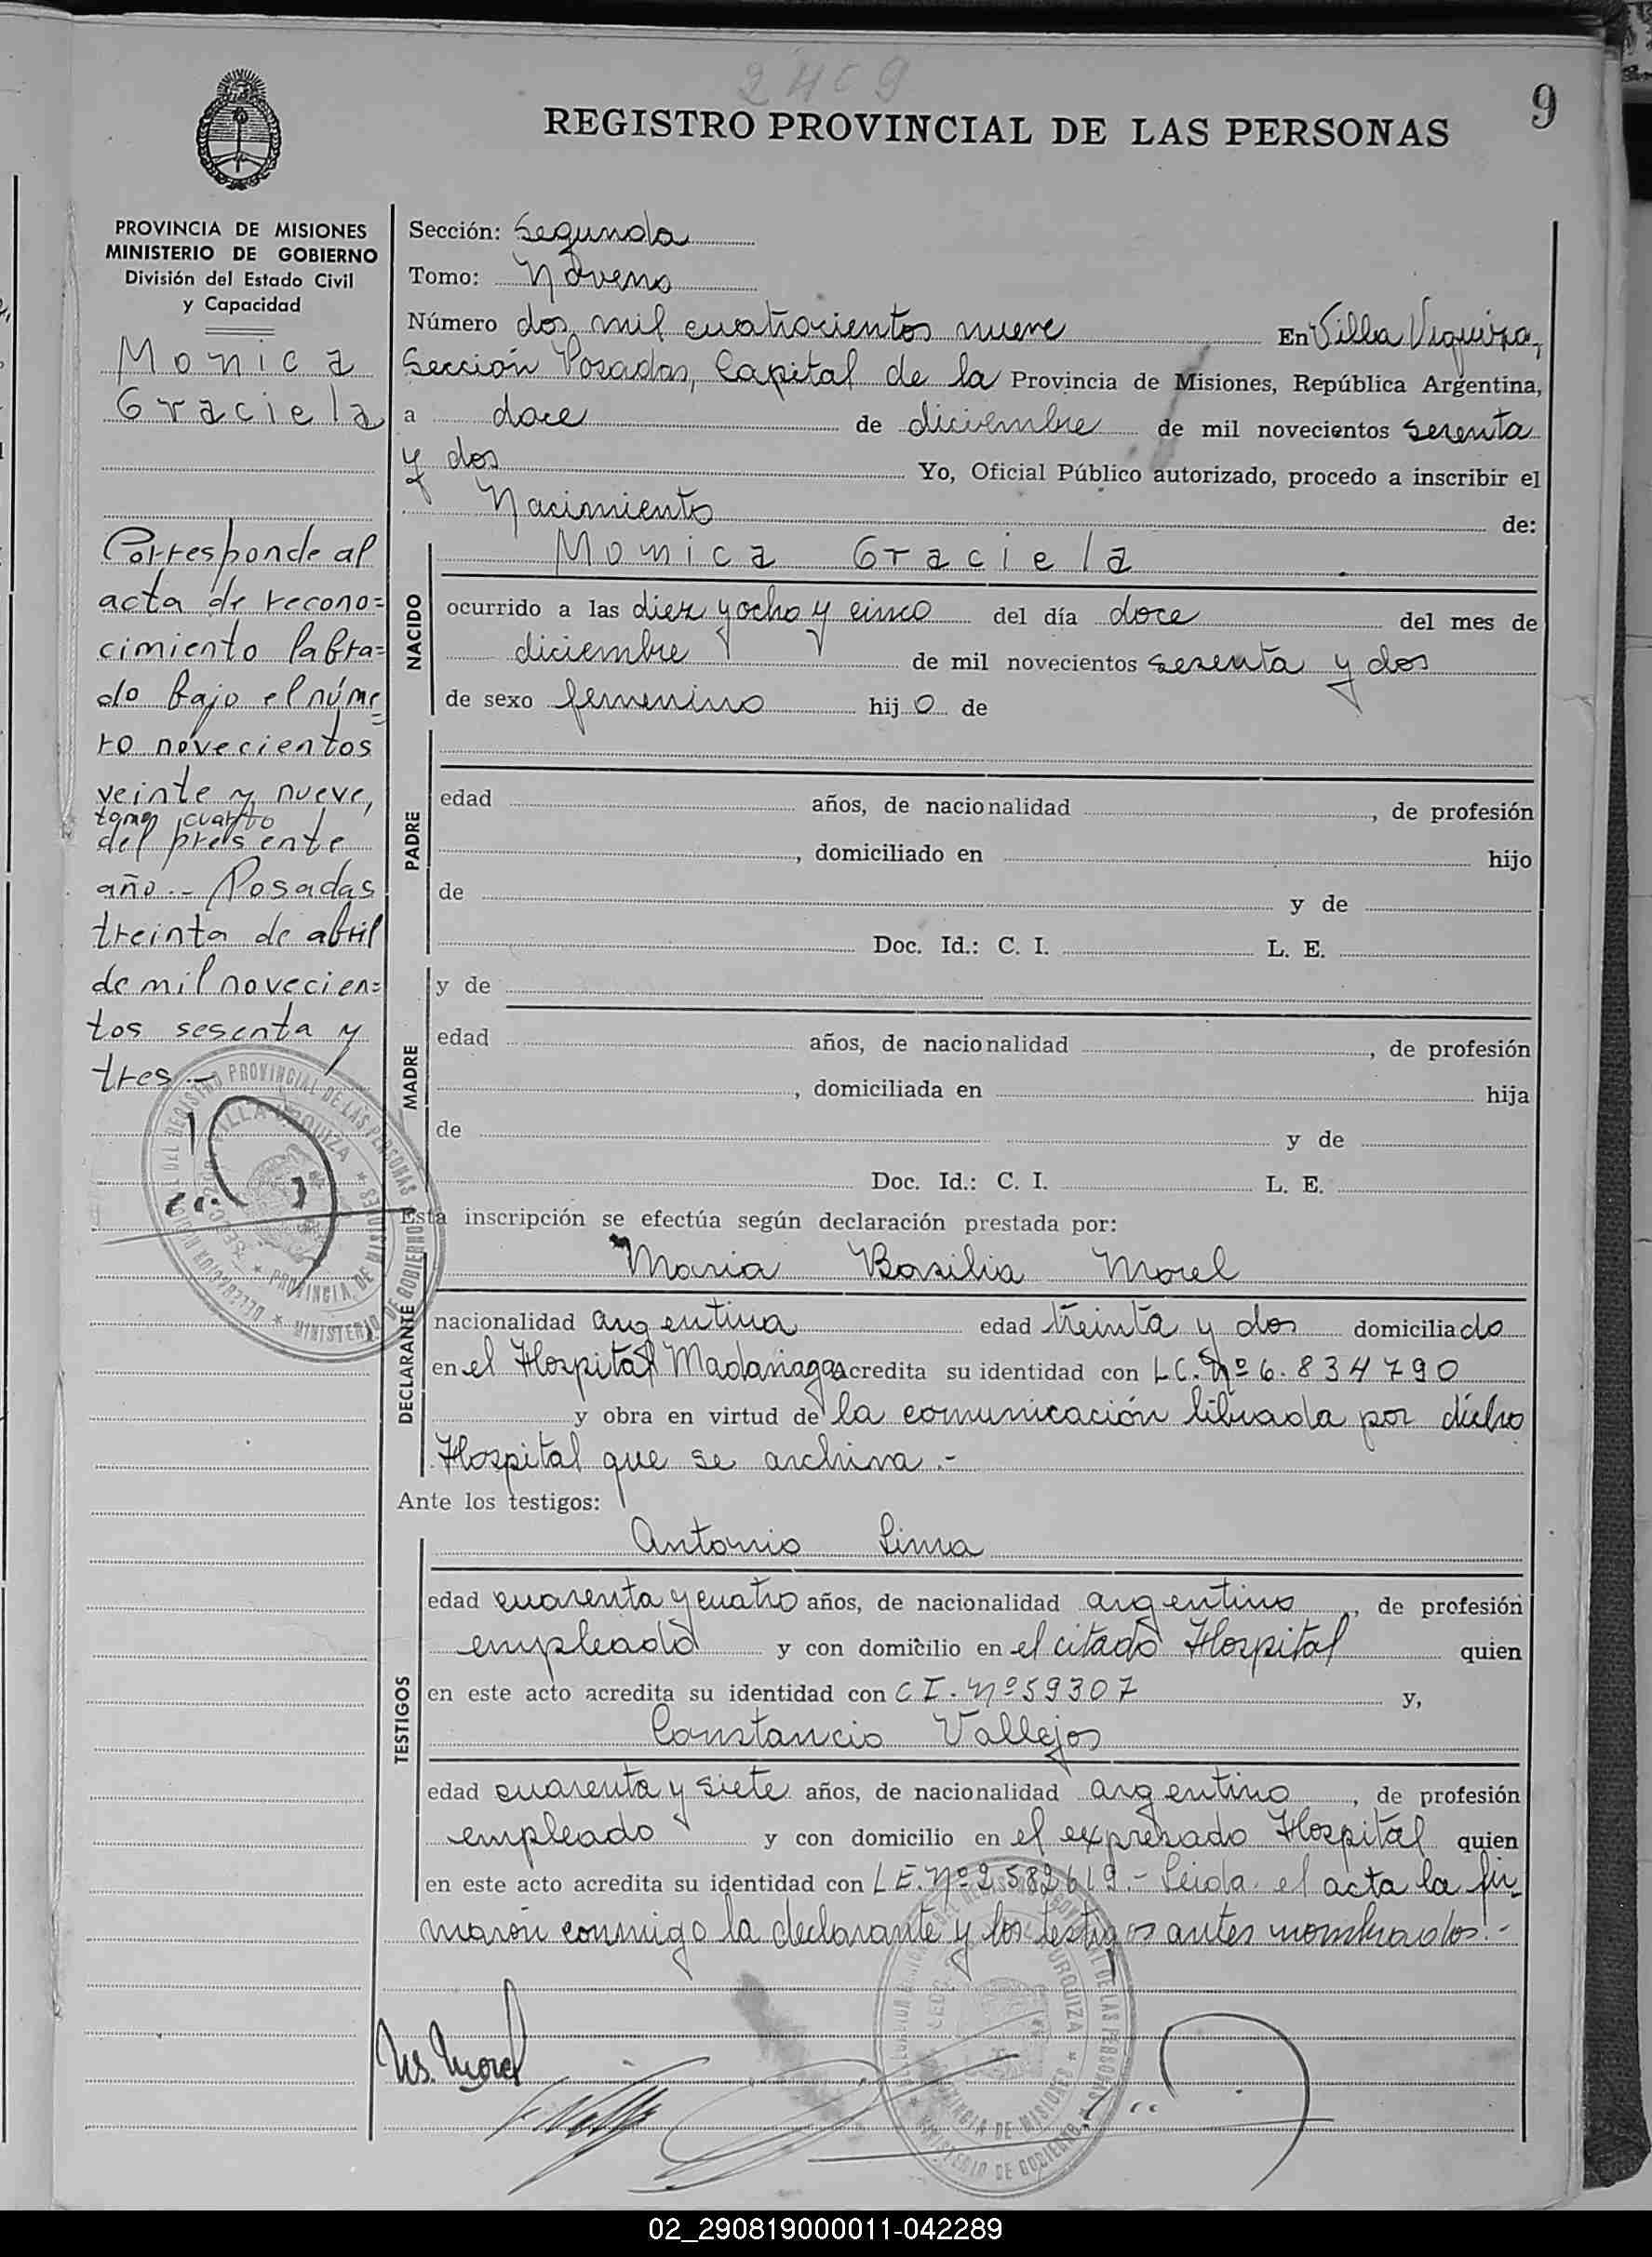 2409
9
REGISTRO PROVINCIAL DE LAS PERSONAS
PROVINCIA DE MISIONES
MINISTERIO DE GOBIERNO
División del Estado Civil
y Capacidad
Monica
Graciela
Corresponde al
acta de recono=
cimiento labra=
do bajo el núme=
ro novecientos
veinte y nueve,
tomo cuarto
del presente
año.- Posadas
treinta de abril
de mil novecien=
tos sesenta y
tres.-
Sección: Segunda
Tomo: Noveno
Número dos mil cuatrocientos nueve En Villa Urquiza,
Sección Posadas, Capital de la Provincia de Misiones, República Argentina,
a doce de diciembre de mil novecientos sesenta
y dos Yo, Oficial Público autorizado, procedo a inscribir el
Nacimiento de:
Monica Graciela
NACIDO
ocurrido a las diez y ocho y cinco del día doce del mes de
diciembre de mil novecientos sesenta y dos
de sexo femenino hij o de
PADRE
edad años, de nacionalidad , de profesión
, domiciliado en hijo
de y de
Doc. Id.: C. I. L. E.
MADRE
y de
edad años, de nacionalidad , de profesión
, domiciliada en hija
de y de
Doc. Id.: C. I. L. E.
Esta inscripción se efectúa según declaración prestada por:
DECLARANTE
Maria Basilia Morel
nacionalidad argentina edad treinta y dos domiciliado
en el Hospital Madariaga acredita su identidad con L C. Nº 6.834790
y obra en virtud de la comunicación librada por dicho
Hospital que se archiva.-
Ante los testigos:
TESTIGOS
Antonio Lima
edad cuarenta y cuatro años, de nacionalidad argentino, de profesión
empleado y con domicilio en el citado Hospital quien
en este acto acredita su identidad con C I. Nº 59307 y,
Constancio Vallejos
edad cuarenta y siete años, de nacionalidad argentino, de profesión
empleado y con domicilio en el expresado Hospital quien
en este acto acredita su identidad con L E. Nº 2582619.- Leida el acta la fir-
maron conmigo la declarante y los testigos antes nombrados.-
Ms. Morel
02_290819000011-042289